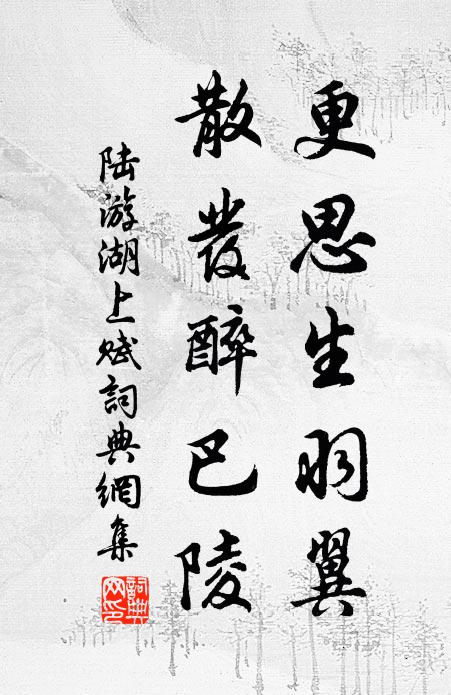 更思生羽翼
散發醉巴陵
陆游湖上赋詞典網集
詞典网印